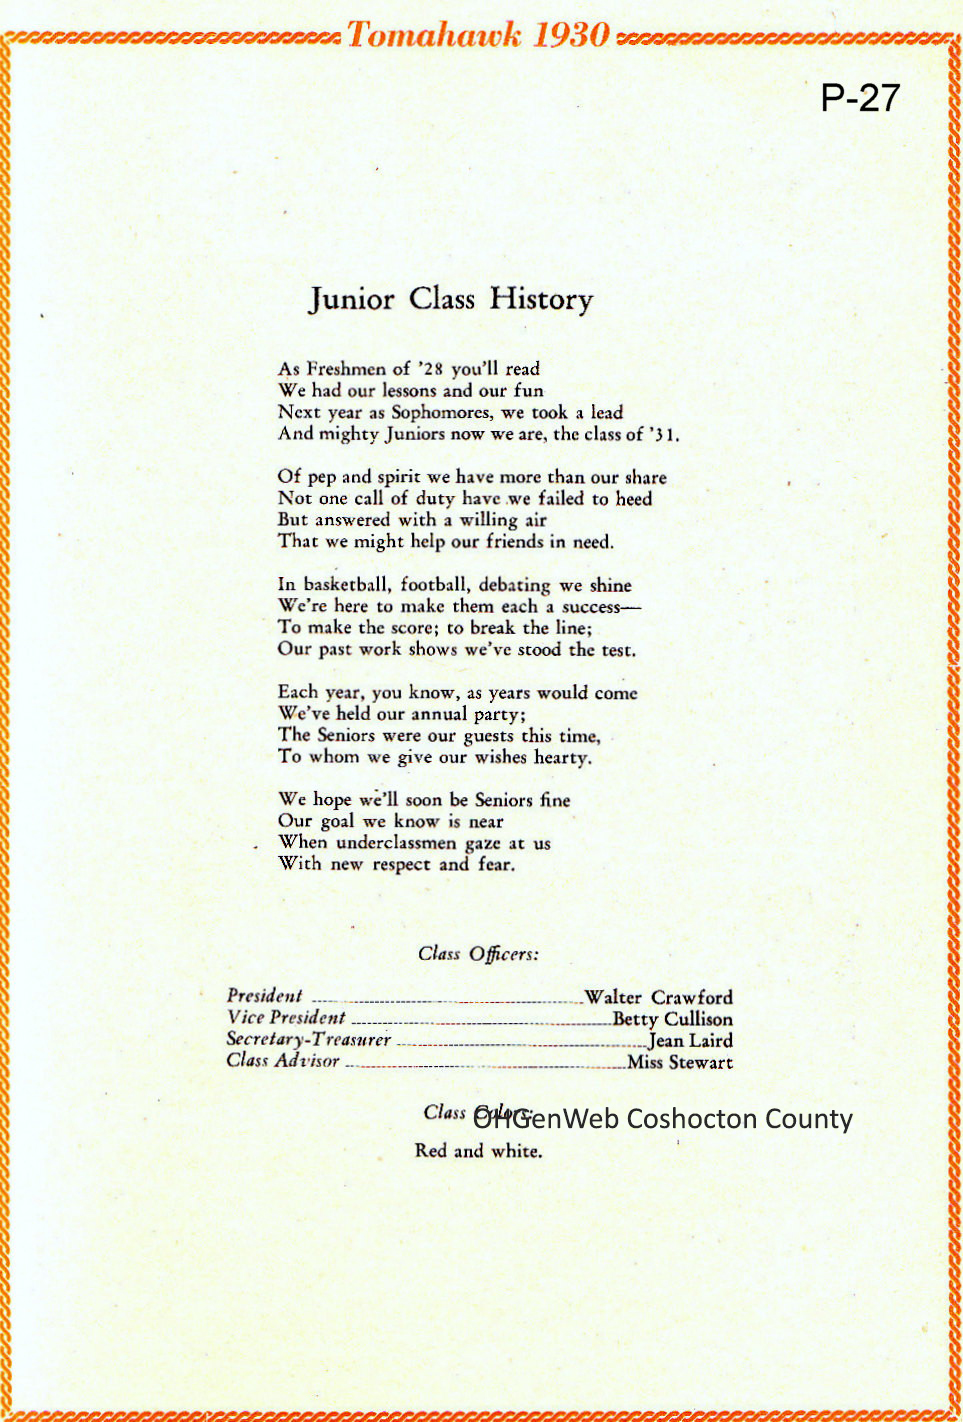 Tomahawk 1930
P-27
Junior Class History
As Freshmen of '28 you'll read
We had our lessons and our fun
Next year as Sophomores, we took a lead
And mighty Juniors now we are, the class of '31.
Of pep and spirit we have more than our share
Not one call of duty have we failed to heed
But answered with a willing air
That we might help our friends in need.
In basketball, football, debating we shine
We're here to make them each a success—
To make the score; to break the line;
Our past work shows we've stood the test.
Each year, you know, as years would come
We've held our annual party;
The Seniors were our guests this time,
To whom we give our wishes hearty.
We hope we'll soon be Seniors fine
Our goal we know is near
When underclassmen gaze at us
With new respect and fear.
Class Officers:
President Walter Crawford
Vice President Betty Cullison
Secretary-Treasurer Jean Laird
Class Advisor Miss Stewart
Class Colors:
OHGenWeb Coshocton County
Red and white.